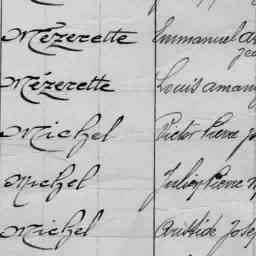 Mézerette Emmanuel
Mézerette Louis
Michel Victor Pierre
Michel Julien Pierre
Michel Aristide